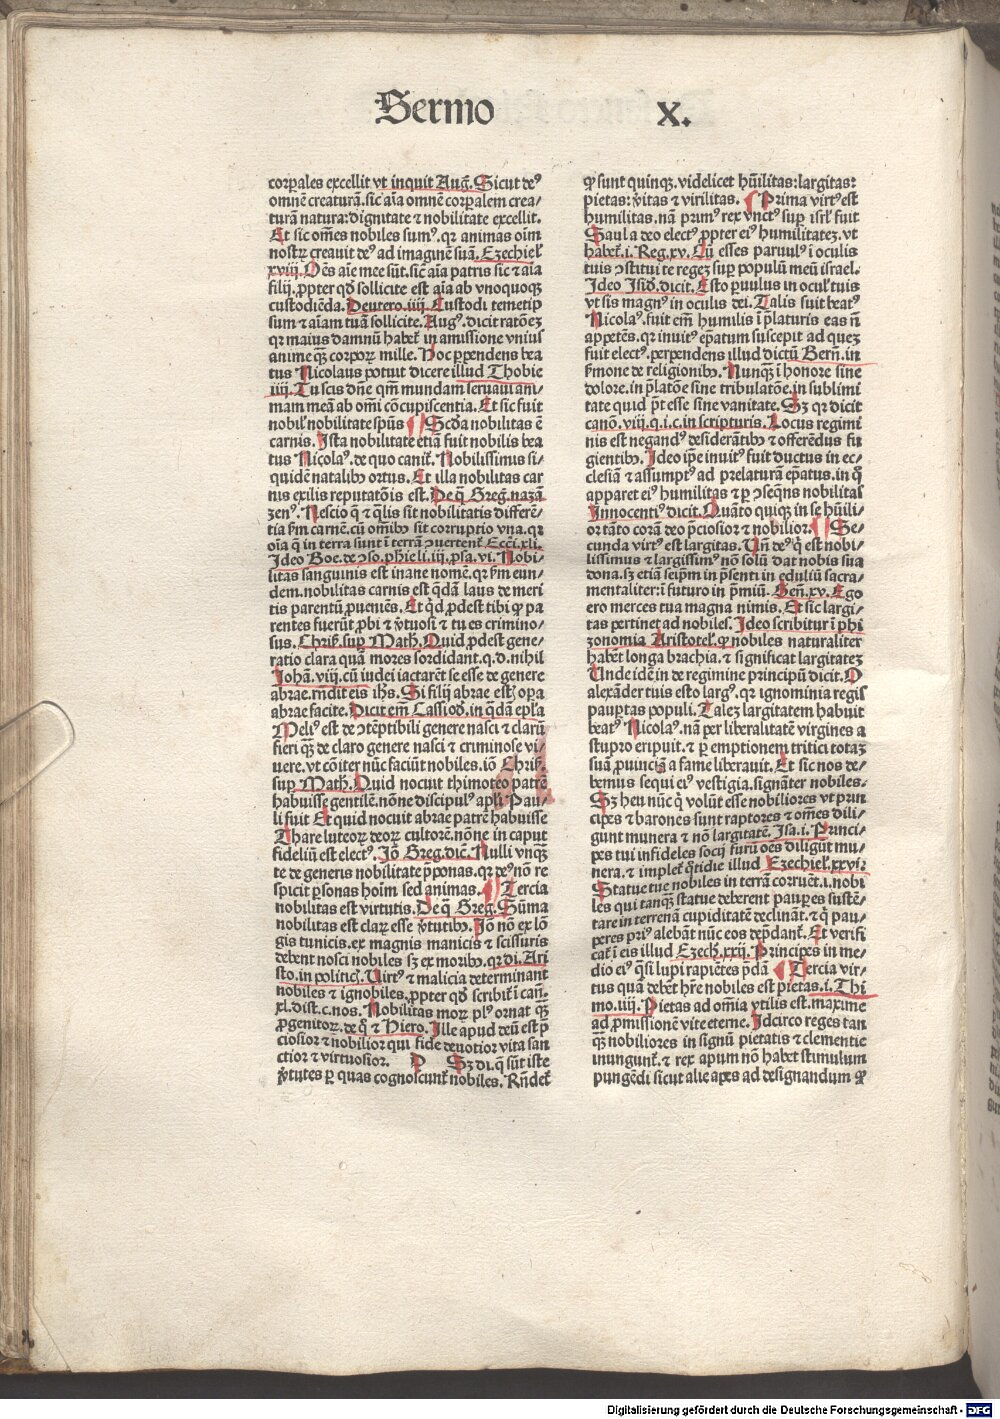 Sermo X.
corꝑales excellit vt inquit Aug̃. Sicut deꝰ
omnē creaturā. sic aīa omnē corꝑalem crea⸗
turā natura: dignitate ⁊ nobilitate excellit.
Et sic om̄es nobiles sumꝰ. qꝛ animas oīm
nostrꝝ creauit deꝰ ad imaginē suā. Ezechiel̕
xviij. Oēs aīe mee sūt. sic̄ aīa patris sic ⁊ aīa
filij. ꝓpter qḋ sollicite est aīa ab vnoquoqꝫ
custodiēda. Deutero. iiij. Custodi temetip
sum ⁊ aīam tuā sollicite. Augꝰ. dicit ratōeꝫ
qꝛ maius damnū habet̕ in amissione vnius
anime qꝫ̄ corporꝝ mille. Hoc ꝑpendens bea
tus Nicolaus potuit dicere illud Thobie
iiij. Tu scis dn̄e qm̄ mundam seruaui ani⸗
mam meā ab om̄i cōcupiscentia. Et sic fuit
nobilꝰ nobilitate spūs ¶ Scḋa nobilitas ē
carnis. Ista nobilitate etiā fuit nobilis bea
tus Nicolaꝰ. de quo canit̕. Nobilissimus si⸗
quidē natalibꝰ ortus. Et illa nobilitas car
nis exilis reputatōis est. De q̄ Greg. nazā
zenꝰ. Nescio q̄ ⁊ q̄lis sit nobilitatis differē⸗
tia ẜm carnē. cū om̄ibꝰ sit corruptio vna. qꝛ
oīa q̄ in terra sunt ī terrā ꝯuertent̕ Ecci. xli.
Ideo Boe. de ꝯso. phīe li. iij. ꝓsa. vi. Nobi⸗
litas sanguinis est inane nomē. qꝛ ẜm eun⸗
dem. nobilitas carnis est q̄dā laus de meri
tis parentū ꝓueniēs. Et qḋ ꝓdest tibi ꝙ pa
rentes fuerūt ꝓbi ⁊ v̓tuosi ⁊ tu es crimino⸗
sus. Chriß. suꝑ Math̕. Quid ꝓdest gene⸗
ratio clara quā mores sordidant. q. d. nihil
Johā. viij. cū iudei iactarēt se esse de genere
abrae. rn̄dit eis ih̄s. Si filij abrae estꝭ opa
abrae facite. Dicit em̄ Cassioḋ. in q̄dā epl̕a
Meliꝰ est de ꝯtēptibili genere nasci ⁊ clarū
fieri qꝫ̄ de claro genere nasci ⁊ criminose vi⸗
uere. vt cōiter nūc faciūt nobiles. iō Chriß.
suꝑ Math̕. Quid nocuit thimoteo patrē
habuisse gentilē. nōne discipulꝰ apl̕i Pau⸗
li fuit Et quid nocuit abrae patrē habuisse
Thare luteoꝝ deoꝝ cultorē. nōne in caput
fideliū est electꝰ. Iō Greg. dic̄. Nulli vnqꝫ̄
te de generis nobilitate p̄ponas. qꝛ deꝰ nō re
spicit ꝑsonas hoīm sed animas. ¶ Tercia
nobilitas est virtutis. De q̄ Greg. Sūma
nobilitas est clarꝫ esse v̓tutibꝰ. Iō nō ex lō
gis tunicis. ex magnis manicis ⁊ scissuris
debent nosci nobiles sꝫ ex moribꝰ. qꝛ di. Ari
sto. in politicꝭ. Virtꝰ ⁊ malicia determinant
nobiles ⁊ ignobiles. ꝓpter qḋ scribit̕ ī can̄.
xl. dist. c. nos. Nobilitas moꝝ plꝰ ornat qꝫ̄
ꝓgenitoꝝ. de q̄ ⁊ Hiero. Ille apud deū est p̄
ciosior ⁊ nobilior qui fide deuotior vita san
ctior ⁊ virtuosior. P Sꝫ di. q̄ sūt iste
v̓tutes ꝑ quas cognoscunt̕ nobiles. Rn̄det̕
ꝙ sunt quinqꝫ. videlicet hūilitas: largitas:
pietas: v̓itas ⁊ virilitas. ¶ Prima virtꝰ est
humilitas. nā primꝰ rex vnctꝰ suꝑ isrl̕ fuit
Saul a deo electꝰ ꝓpter eiꝰ humilitateꝫ. vt
habet̕. i. Reg. xv. Cū esses paruulꝰ ī oculis
tuis ꝯstitui te regeꝫ suꝑ populū meū israel.
Ideo Isid̕. dicit. Esto ꝑuulus in ocul̕ tuis
vt sis magnꝰ in oculis dei. Talis fuit beatꝰ
Nicolaꝰ. fuit em̄ humilis ī p̄laturis eas nō
appetēs. qꝛ inuitꝰ ep̄atum suscepit ad queꝫ
fuit electꝰ. ꝑpendens illud dictū Bern̄. in
ẜmone de religionibꝰ. Nunqꝫ ī honore sine
dolore. in p̄latōe sine tribulatōe. in sublimi
tate quid pt̄ esse sine vanitate. Sꝫ qꝛ dicit
canō. viij. q. i. c. in scripturis. Locus regimi
nis est negandꝰ desiderātibꝰ ⁊ offerēdus fu
gientibꝰ. Ideo ip̄e inuitꝰ fuit ductus in ec⸗
clesiā ⁊ assumptꝰ ad prelaturā ep̄atus. in q̄
apparet eiꝰ humilitas ⁊ ꝑ ꝯseq̄ns nobilitas
Innocentiꝰ dicit. Quāto quiqꝫ in se hūili⸗
or tāto corā deo p̄ciosior ⁊ nobilior. ¶ Se⸗
cunda virtꝰ est largitas. Vn̄ deꝰ q̄ est nobi⸗
lissimus ⁊ largissimꝰ nō solū dat nobis sua
dona. sꝫ etiā seip̄m in p̄senti in ediliū sacra⸗
mentaliter: ī futuro in p̄miū. Gen̄. xv. Ego
ero merces tua magna nimis. Et sic largi⸗
tas pertinet ad nobiles. Ideo scribitur ī phi
zonomia Aristotel̕. ꝙ nobiles naturaliter
habēt longa brachia. ⁊ significat largitateꝫ
Unde idē in de regimine principū dicit. O
alexāder tuis esto largꝰ. qꝛ ignominia regis
paupertas populi. Taleꝫ largitatem habuit
beatꝰ Nicolaꝰ. nā per liberalitatē virgines a
stupro eripuit. ⁊ ꝑ emptionem tritici totaꝫ
suā ꝓuinciā a fame liberauit. Et sic nos de⸗
bemus sequi eiꝰ vestigia. signāter nobiles.
Sꝫ heu nūc q̄ volūt esse nobiliores vt prin
cipes ⁊ barones sunt raptores ⁊ om̄es dili⸗
gunt munera ⁊ nō largitatē. Isa. i. Princi⸗
pes tui infideles socij furū oēs diligūt mu⸗
nera. ⁊ implet̕ q̄tidie illud Ezechiel̕. xxvi.
Statue tue nobiles in terrā corruēt. i. nobi
les qui tanqꝫ statue deberent pauꝑes sustē⸗
tare in terrenā cupiditatē declināt. ⁊ q̄ pau⸗
peres priꝰ alebāt nūc eos dep̄dant̕. Et verifi
cat̕ ī eis illud Ezech̕. xxij. Principes in me⸗
dio eiꝰ q̄si lupi rapiētes p̄dā ¶ Tercia vir⸗
tus quā debēt hr̄e nobiles est pietas. i. Thi
mo. iiij. Pietas ad om̄ia vtilis est. maxime
ad ꝓmissionē vite eterne. Idcirco reges tan
qꝫ nobiliores in signū pietatis ⁊ clementie
inungunt̕. ⁊ rex apum nō habet stimulum
pungēdi sicut alie apes ad designandum ꝙ
Digitalisierung gefördert durch die Deutsche Forschungsgemeinschaft - DFG